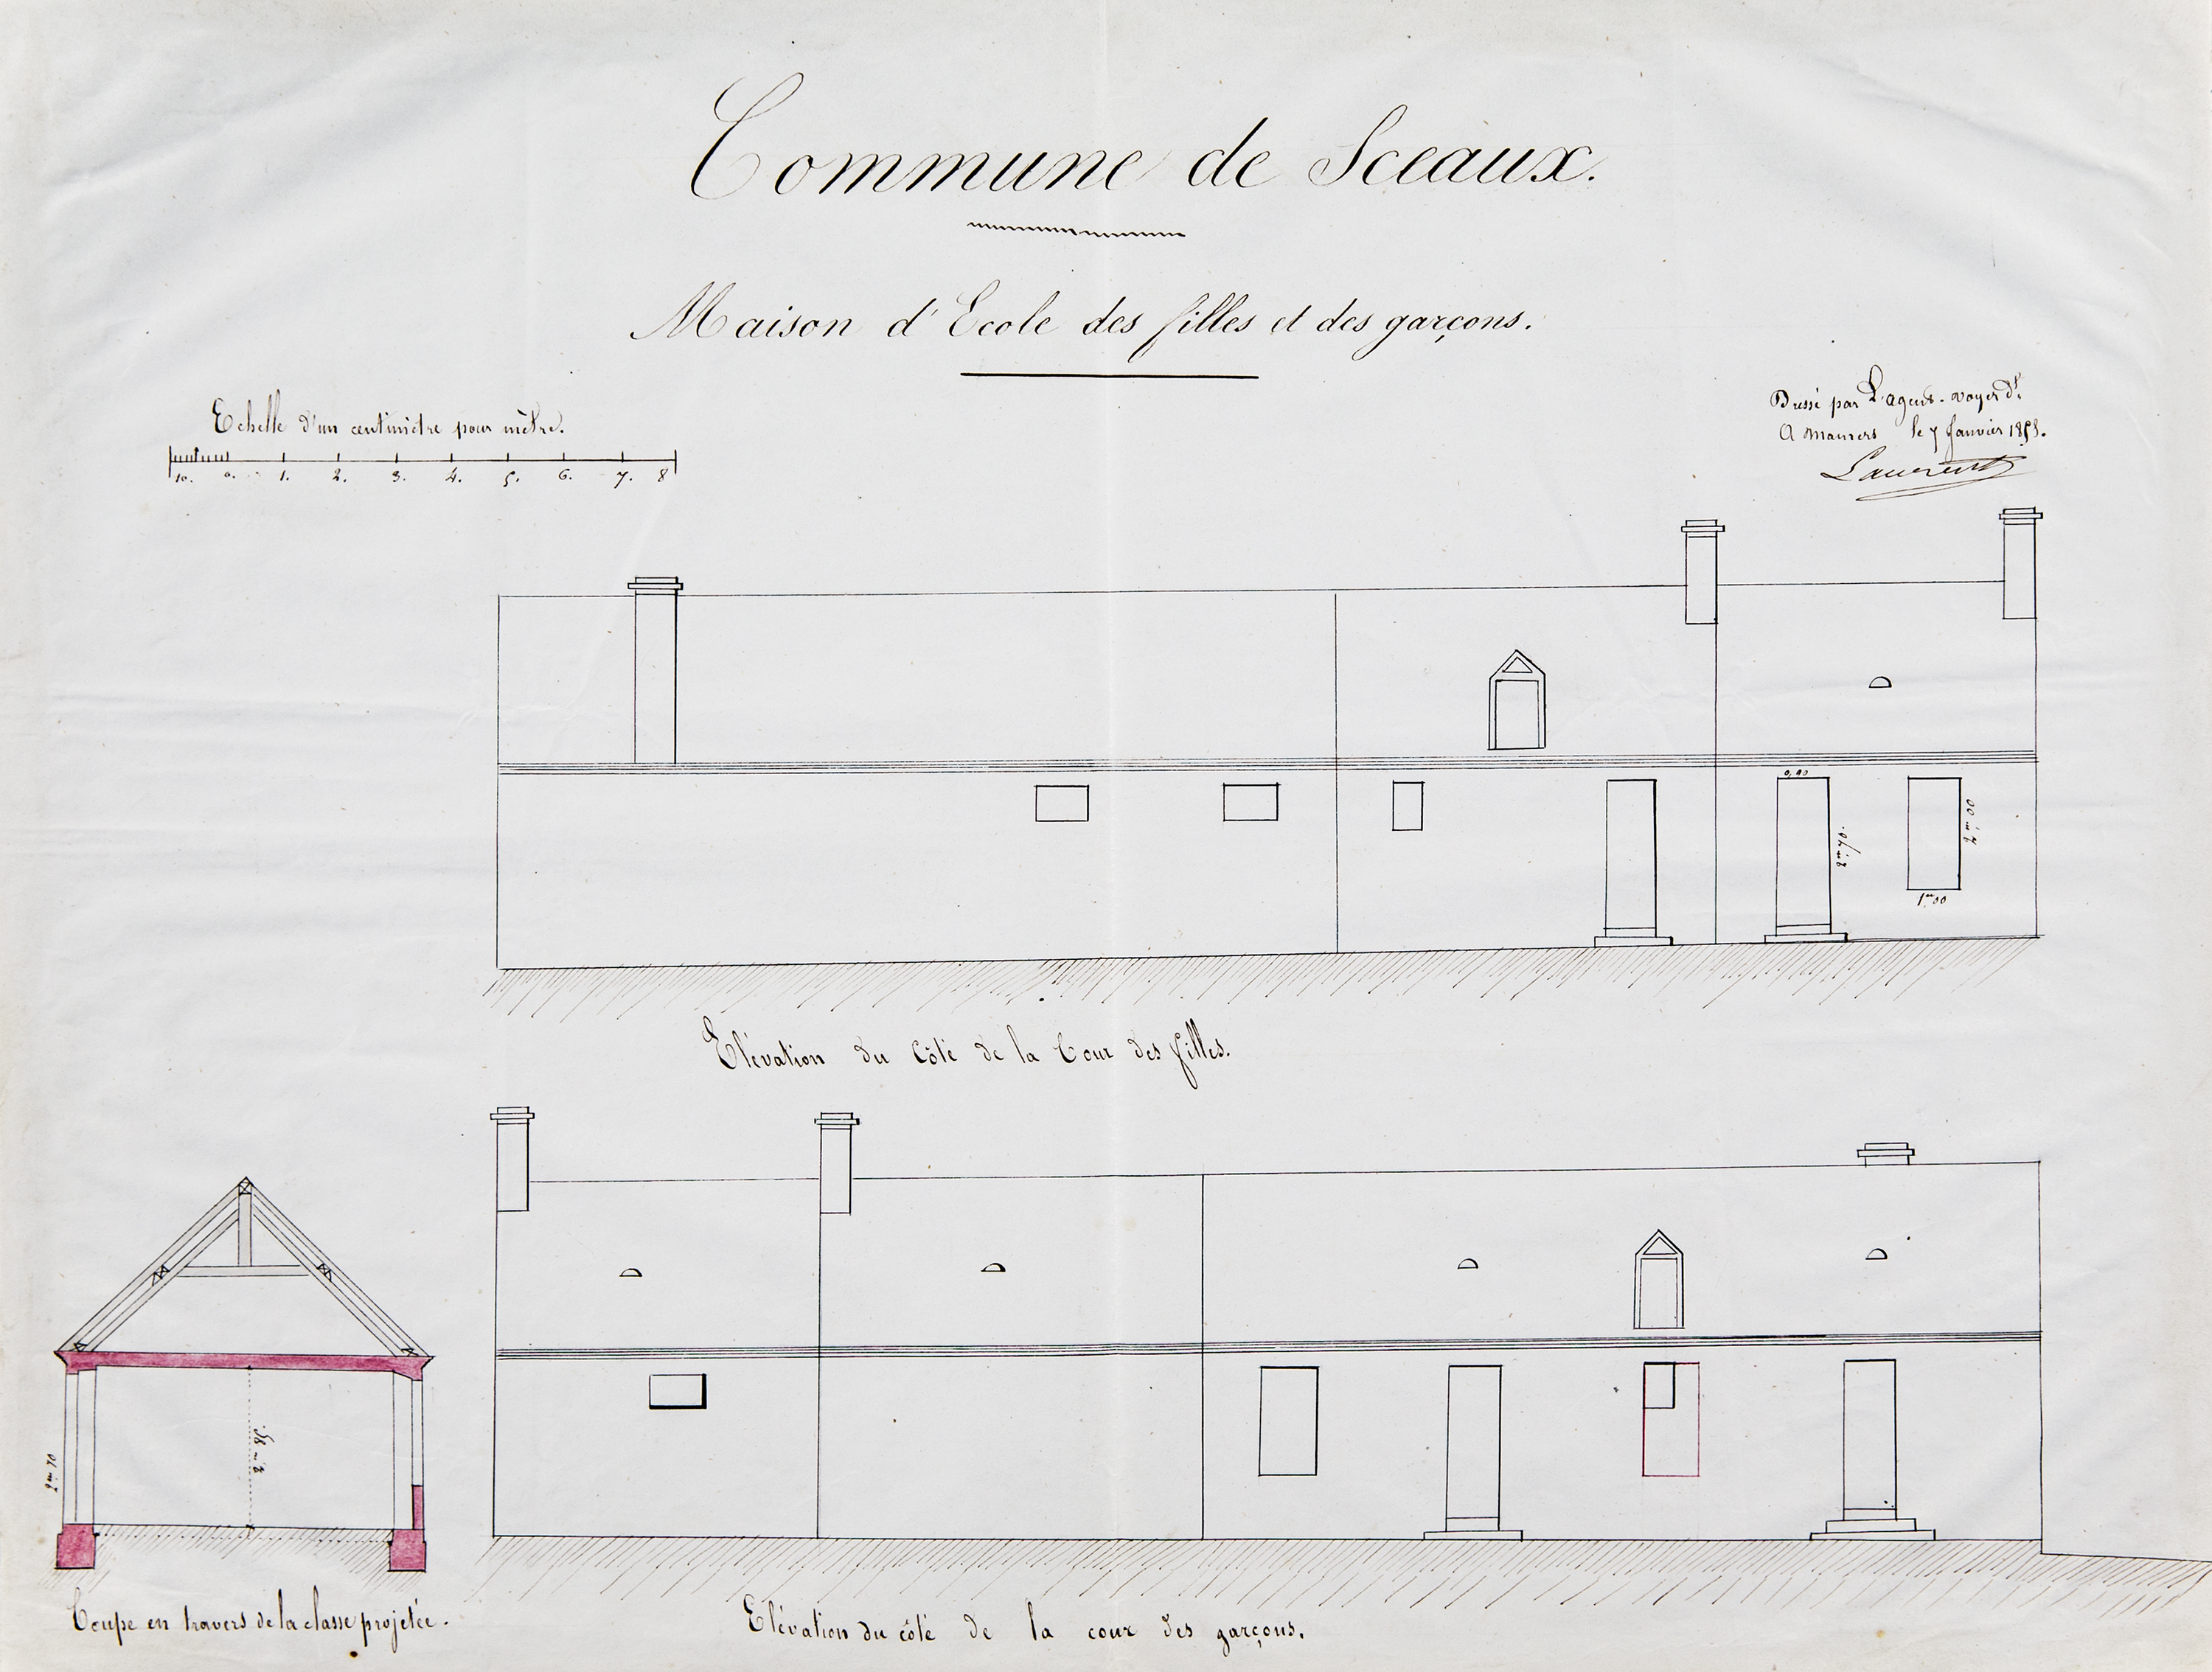 Commune de Sceaux.
Maison d'Ecole des filles et des garçons.
Echelle d'un centimètre pour mètre.
10. 0. 1. 2. 3. 4. 5. 6. 7. 8
Dressé par L'agent-voyer d't
A Mamers le 7 Janvier
Laurent
0,90
2m70.
2m00
1m00
Elévation du Côté de la Cour des filles.
2m70
2m85
Coupe en travers de la classe projetée.
Elévation du côté de la cour des garçons.